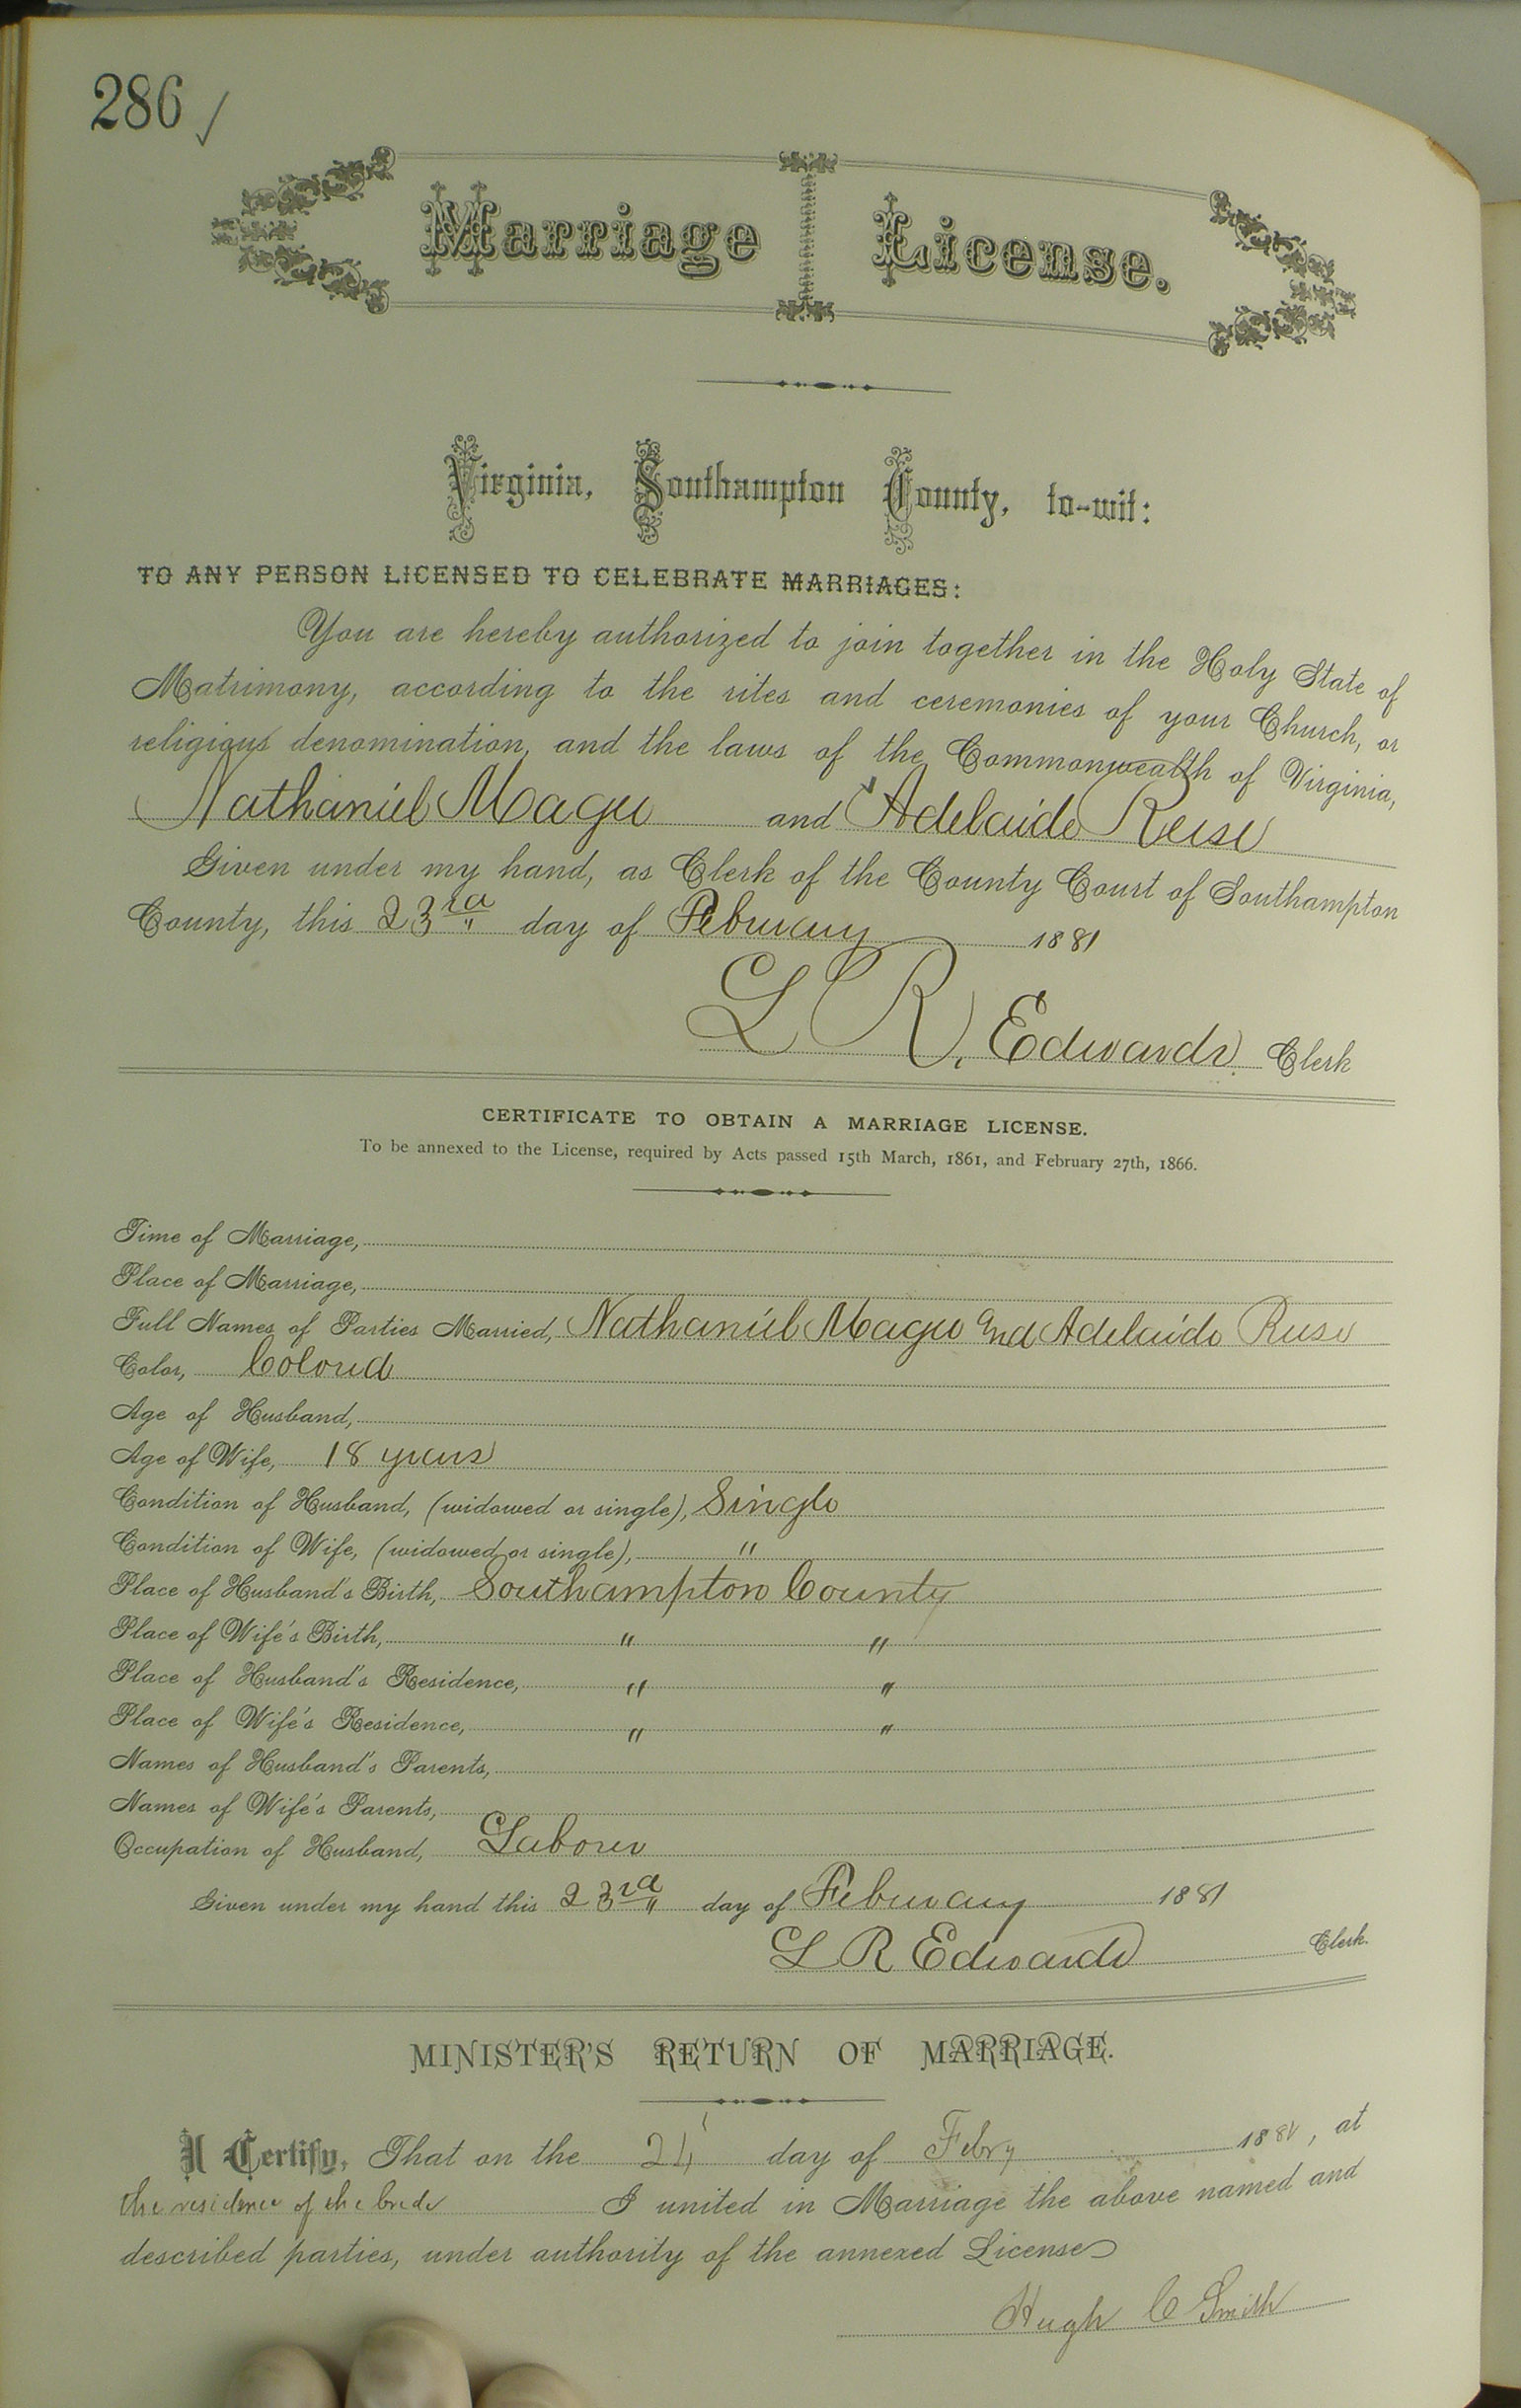 286 ✓
Marriage License.
Virginia, Southampton County, to-wit:
TO ANY PERSON LICENSED TO CELEBRATE MARRIAGES:
You are hereby authorized to join together in the Holy State of
Matrimony, according to the rites and ceremonies of your Church, or
religious denomination, and the laws of the Commonwealth of Virginia,
Nathaniel Magee and Adelaide Reese
Given under my hand, as Clerk of the County Court of Southampton
County, this 23rd day of February 1881
L R. Edwards Clerk
CERTIFICATE TO OBTAIN A MARRIAGE LICENSE.
To be annexed to the License, required by Acts passed 15th March, 1861, and February 27th, 1866.
Time of Marriage,
Place of Marriage,
Full Names of Parties Married, Nathaniel Magee and Adelaide Reese
Color, Colored
Age of Husband,
Age of Wife, 18 years
Condition of Husband, (widowed or single), Single
Condition of Wife, (widowed or single), "
Place of Husband's Birth, Southampton County
Place of Wife's Birth, " "
Place of Husband's Residence, " "
Place of Wife's Residence, " "
Names of Husband's Parents,
Names of Wife's Parents,
Occupation of Husband, Laborer
Given under my hand this 23rd day of February 1881
L R Edwards Clerk.
MINISTER'S RETURN OF MARRIAGE.
I Certify, That on the 24 day of Febry 1881, at
the residence of the bride I united in Marriage the above named and
described parties, under authority of the annexed License
Hugh C Smith